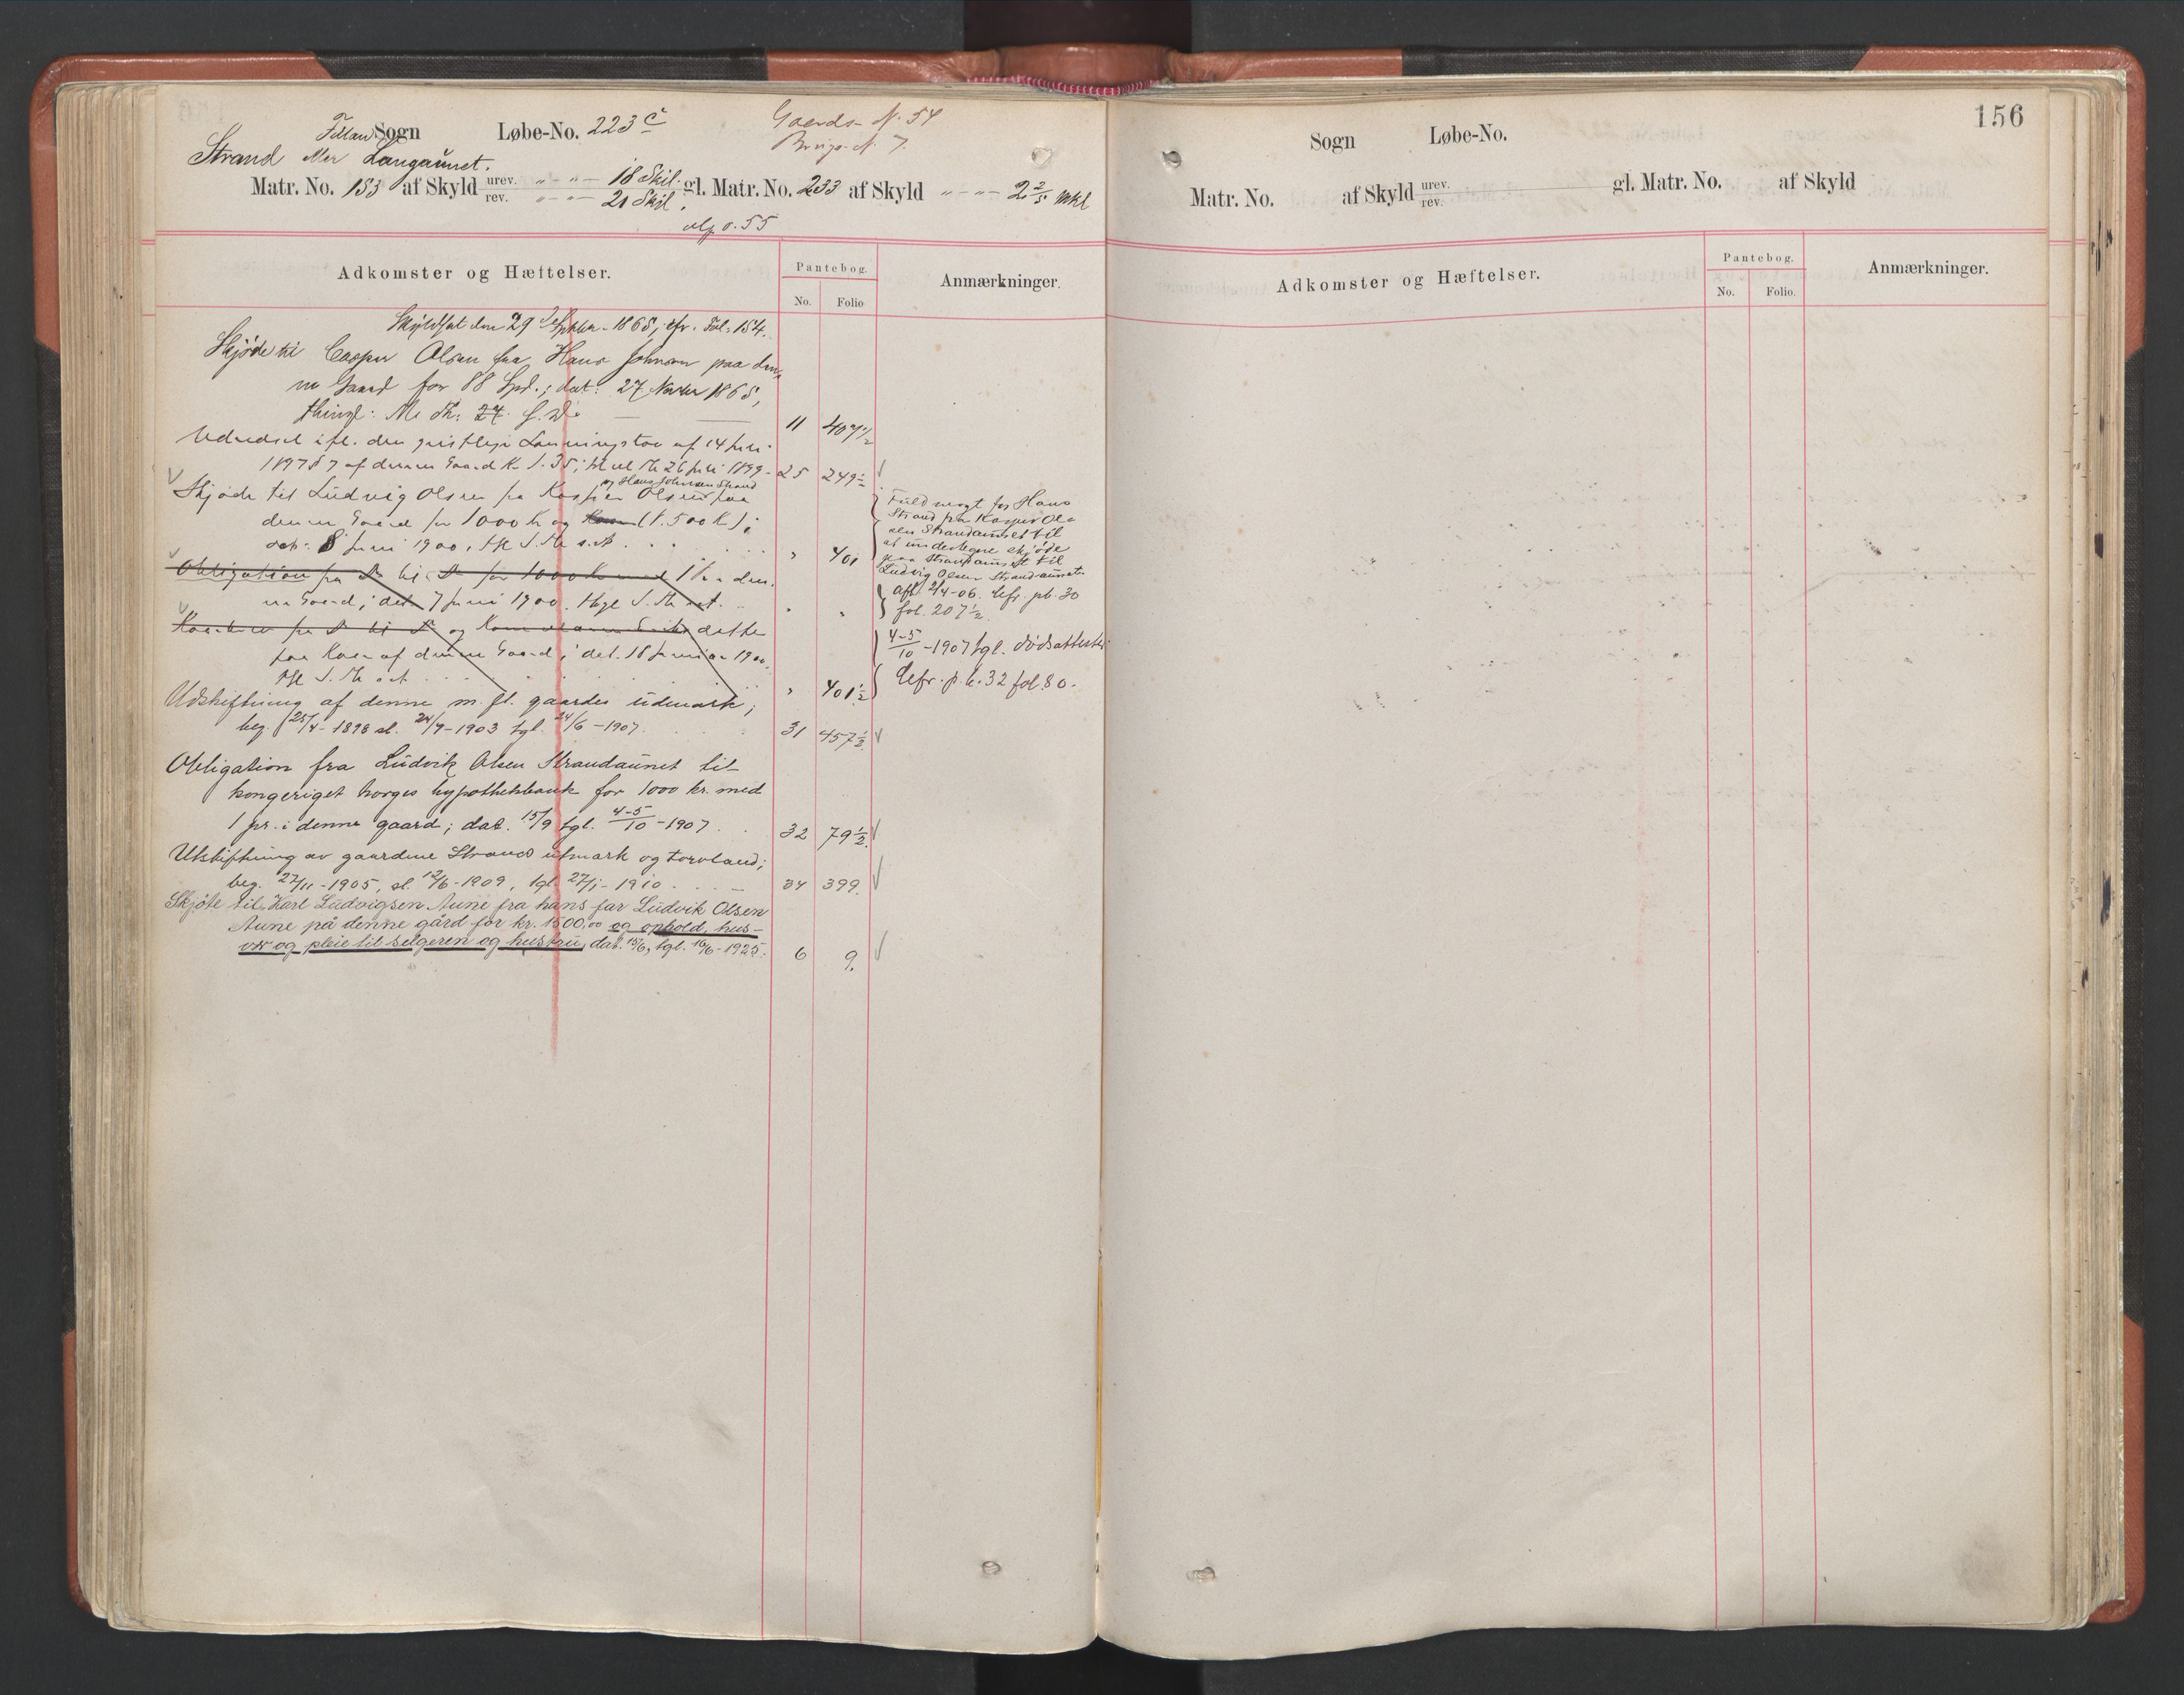 Fillan Sogn Løbe-No. 223 c Gaards-N. 54
Brugs-N. 7.
Strand eller Langaunet.
Matr. No. 153 af Skyld urev. " - " - 18 Skil. gl. Matr. No. 233 af Skyld " - " - 2 2/5 mkl
rev. " - " - 21 Skil.
0.55
Adkomster og Hæftelser. Pantebog. Anmærkninger.
No. Folio
Skyldsat den 29 Septbr. 1865, cfr. Fol. 154.
Skjøde til Casper Olsen fra Hans Johnsen paa den-
ne Gaard for 88 Spd.; dat: 27 Novbr 1865,
thingl: 27. 11 407 1/2
Udredsel ifl. den geistlige Lønningslov af 14 juli
1897 § 7 af denne Gaard Kr. 1.35; 26 juli 1899 - 25 249 1/2
Skjøde til Ludvig Olsen fra Kasper Olsen paa
og Hans Johnsen Strand
denne Gaard for 1000 Kr og (f. 500 Kr);
dat: 8 juni 1900, " 401
Obligation fra D. til D. for 1000 Kr med 1 Pr. i den-
ne Gaard; dat. 7 juni 1900. " "
og dette
paa af denne Gaard; dat. 18 1900,
" 401 1/2
Udskiftning af denne m. fl. gaardes udmark;
beg. 25/4 - 1898 sl. 24/9 - 1903 tgl. 24/6 - 1907. 31 457 1/2
Obligation fra Ludvik Olsen Strandaunet til
kongeriget norges hypothekbank for 1000 kr. med
1 pr. i denne gaard; dat. 15/9 tgl. 4-5/10 - 1907. 32 79 1/2
Utskiftning av gaardene Strands utmark og torvland;
beg. 27/11 - 1905, sl. 12/6 - 1909, tgl. 27/1 - 1910. 34 399.
Skjøte til Karl Ludvigsen Aune fra hans far Ludvik Olsen
Aune på denne gård for kr. 1500,00 og ophold, hus-
vær og pleie til selgeren og hustru, dat. 15/6, tgl. 16/6 - 1925. 6 9.
Fuldmagt for Hans
Strand fra Kasper Ol-
sen Strandaunet til
at undertegne skjøde
paa Strandaunet til
Ludvig Olsen Strandaunet.
Afl. 2/4-06. Cfr. pb. 30
fol. 207 1/2.
4-5/10 - 1907 tgl. dødsattester
Cfr. p. b. 32 fol. 80.
156
Sogn Løbe-No.
Matr. No. af Skyld urev. gl. Matr. No. af Skyld
rev.
Adkomster og Hæftelser. Pantebog. Anmærkninger.
No. Folio.